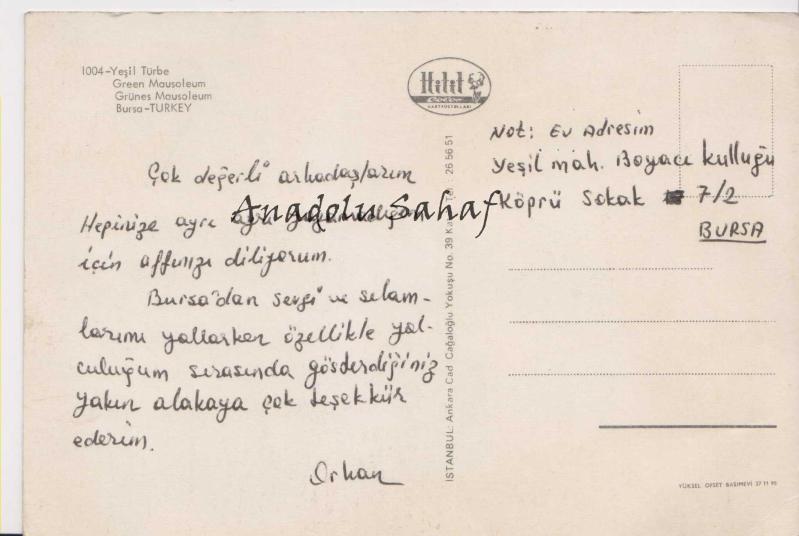 1004-Yeşil Türbe
Green Mausoleum
Grünes Mausoleum
Bursa-TURKEY
Hitit
Color
KARTPOSTALLARI
Çok değerli arkadaşlarım
Hepinize ayrı ayrı
için affınızı diliyorum.
Bursa'dan sevgi ve selam-
larımı yollarken özellikle yol-
culuğum sırasında gösterdiğiniz
yakın alakaya çok teşekkür
ederim.
Orhan
Anadolu Sahaf
İSTANBUL: Ankara Cad. Cağaloğlu Yokuşu No. 39 Tel: 26 56 51
Not: Ev Adresim
Yeşil mah. Boyacı kulluğu
Köprü Sokak 7/2
BURSA
YÜKSEL OFSET BASIMEVİ 27 11 90